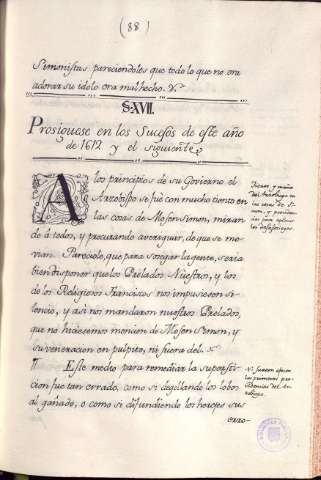 (88)
Simonistas pareciendoles que todo lo que no era
adorar su idolo era mal hecho.
§. XVII.
Prosiguese en los Sucesos de este año
de 1612 y el siguiente.
A los principios de su Govierno el
Arzobispo se fue con mucho tiento en
las cosas de Mosen Simon, miran
do á todos, y procurando averiguar, de que se mo-
vian. Pareciole, que para sosegar la gente, seria
bien disponer que los Prelados Nuestros, y los
de los Religiosos Franciscos nos impusiesen si-
lencio, y asi nos mandaron nuestros Prelados,
que no hiciesemos mencion de Mosen Simon, y
su veneracion en pulpito, ni fuera del.
¶ Este medio para remediar la supersti-
cion fue tan errado, como si degollando los lobos
al gañado, o como si difundiendo los herejes sus
erro-
del Arzobispo en
las cosas de Si-
mon, y
los desasosiegos.
No fueron
las primeras pro-
videncias del Ar-
zobispo.